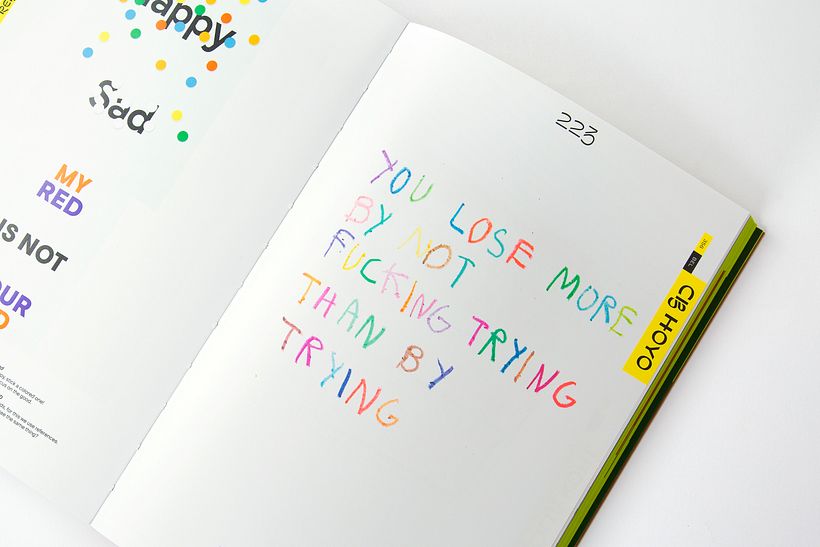 Happy
Sad
MY
RED
IS NOT
223
YOU LOSE MORE
BY NOT
FUCKING TRYING
THAN BY
TRYING
BEL
CB HOYO